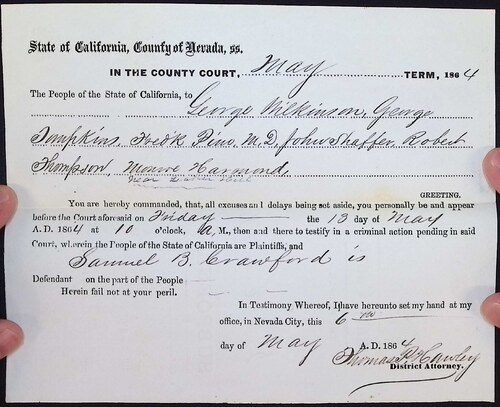 State of California, County of Nevada, ss.
IN THE COUNTY COURT, May TERM, 1864
The People of the State of California, to
George Wilkinson, George
Tompkins, Fredk Pine, M. D, John Shaffer, Robert
Thompson, Monroe Harmond,
near
GREETING.
You are hereby commanded, that, all excuses and delays being set aside, you personally be and appear
before the Court aforesaid on Friday the 13 day of May
A. D. 1864 at 10 o'clock, A, M., then and there to testify in a criminal action pending in said
Court, wherein the People of the State of California are Plaintiffs, and
Samuel B. Crawford is
Defendant on the part of the People
Herein fail not at your peril.
In Testimony Whereof, I have hereunto set my hand at my
office, in Nevada City, this 6th
day of May A. D. 1864
Thomas P. Hawley
District Attorney.